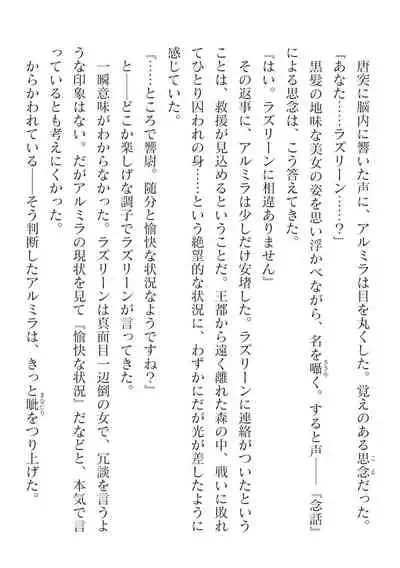 唐突に脳内に響いた声に、アルミラは目を丸くした。覚えのある思念だった。
「あなた……ラズリーン……？」
黒髪の地味な美女の姿を思い浮かべながら、名を囁く。すると声――『念話』
による思念は、こう答えてきた。
『はい。ラズリーンに相違ありません』
その返事に、アルミラは少しだけ安堵した。ラズリーンに連絡がついたという
ことは、救援が見込めるということだ。王都から遠く離れた森の中、戦いに敗れ
てひとり囚われの身……という絶望的な状況に、わずかにだが光が差したように
感じていた。
『……ところで響尉。随分と愉快な状況なようですね？』
と――どこか楽しげな調子でラズリーンが言ってきた。
一瞬意味がわからなかった。ラズリーンは真面目一辺倒の女で、冗談を言うよ
うな印象はない。だがアルミラの現状を見て『愉快な状況』だなどと、本気で言
っているとも考えにくかった。
からかわれている――そう判断したアルミラは、きっと眦をつり上げた。